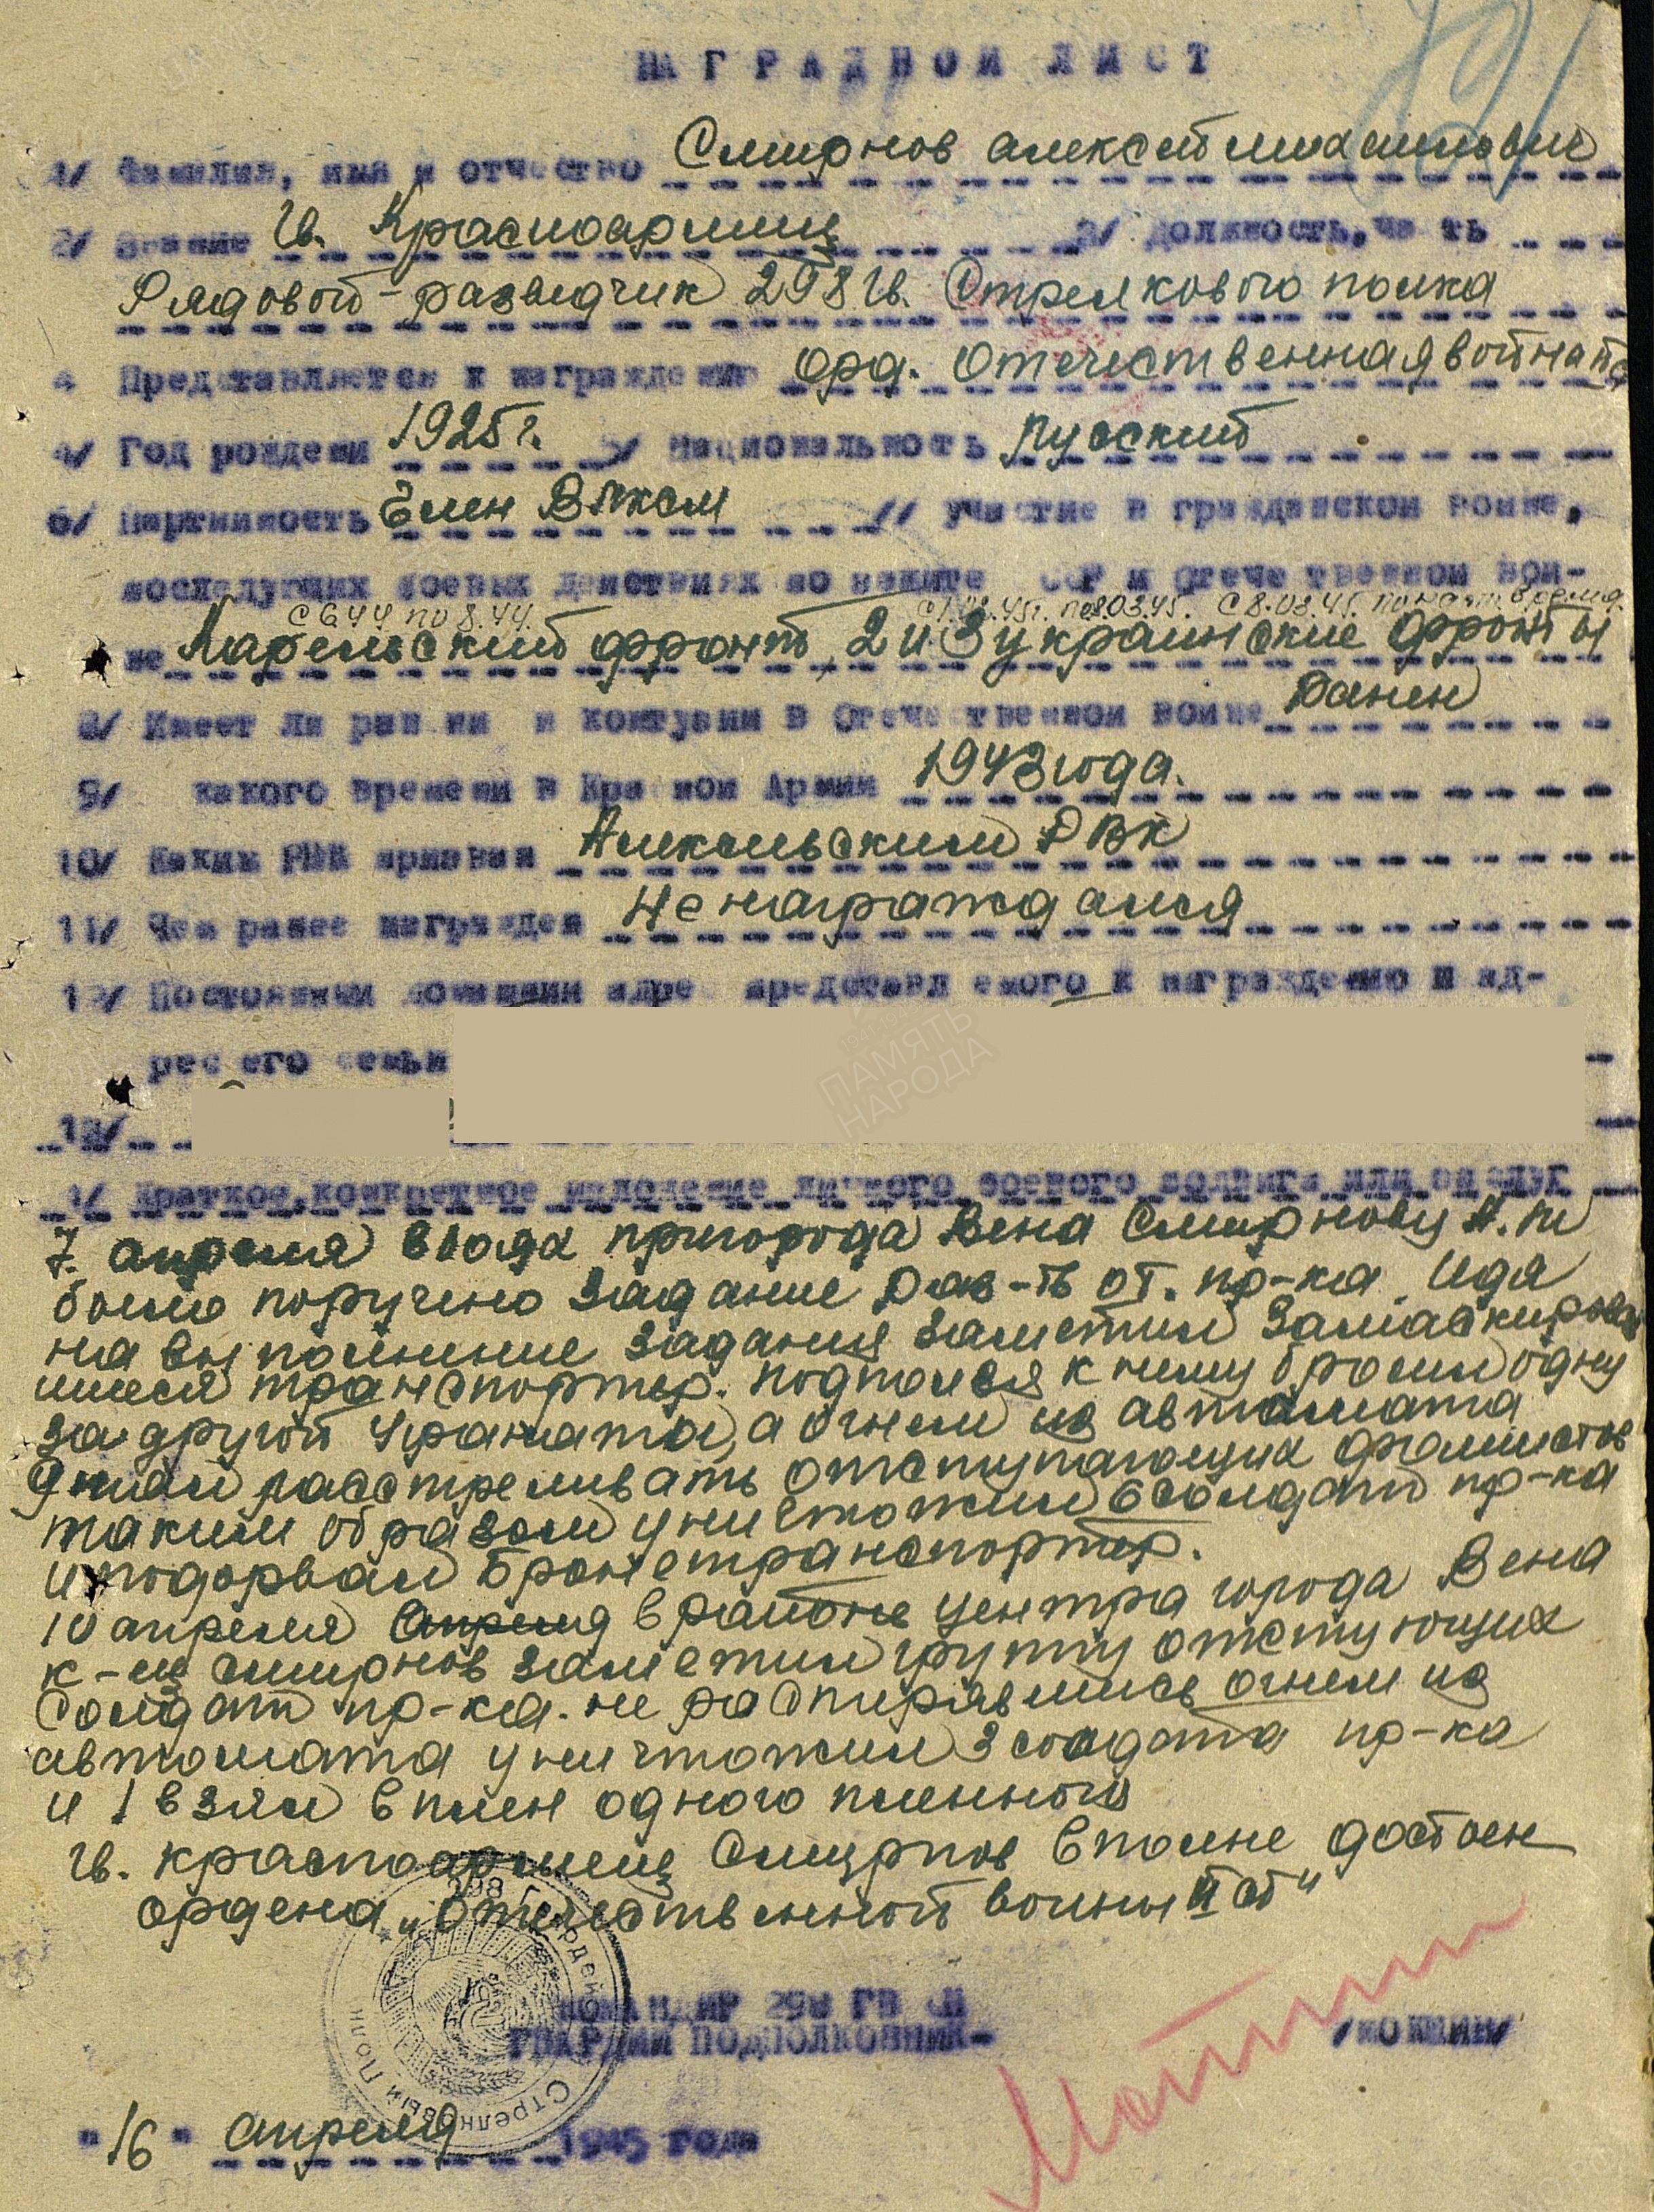 НАГРАДНОЙ ЛИСТ
1/ Фамилия, имя и отчество Смирнов Алексей Михайлович
2/ Звание Гв. Красноармеец 3/ должность, часть
Рядовой-разведчик 298 Гв. Стрелкового полка
Представляется к награждению орд. Отечественная война
4/ Год рождени 1925 г. 5/ Национальность Русский
6/ Партийность Член ВЛКСМ 7/ участие в гражданской войне,
последующих боевых действиях по защите ССР и Отече твенной вой-
с 6.44 по 8.44. с 8.03.45г. по наст. время
не Карельский фронт, 2 и 3 украинские фронты
8/ Имеет ли ран ни и контузии в Отече твенной войне Ранен
9/ какого времени в Кра ной Армии 1943 года.
10/ Каким РВК призван РВК
11/ Чем ранее награжден Не награждался
12/ Постоянный домашний адре представл емого к награждению и ад-
рес его семьи
13/
Краткое, конкретное изложение личного боевого подвига или заслуг
7. апреля в боях пригорода Вена Смирнову А. М
было поручено задание Раз-ть от. пр-ка. Идя
на выполнение задания заметил замаскировав
шиеся транспортер. подполся к нему бросил одну
за другой гранаты, а огнем из автомата
начал расстреливать отступающих фашистов
таким образом уничтожил 6 солдат пр-ка
и подорвал Бронетранспортер.
10 апреля апреля в районе центра города Вена
к-ец Смирнов заметил группу отступющих
солдат пр-ка. не растерявшись огнем из
автомата уничтожил 3 солдата пр-ка
и 1 взял в плен одного пленного
Гв. красноармеец Смирнов вполне достоен
ордена „Отечественной войны II ст"
КОМАНДИР 298 ГВ СП
ГВАРДИИ ПОДПОЛКОВНИК-
"16" апреля 1945 года
298 Гвардейский Стрелковый Полк
ПАМЯТЬ
НАРОДА